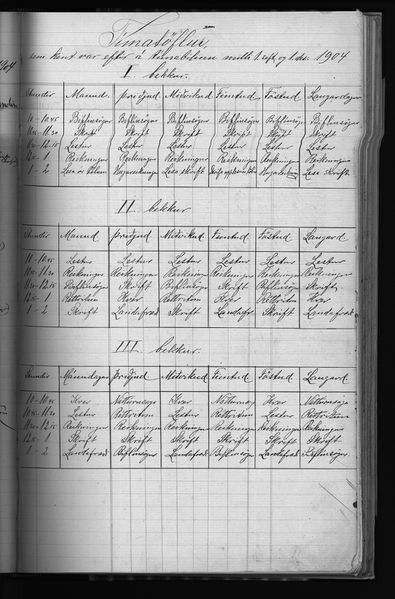 Timatöflur,
sem kent var eftir á tímabilinu milli 1. sept. og 1. des. 1904
I bekkur.
Stundir Mánud. Þriðjud Miðvikud Fimtud Föstud Laugardagur
10 - 10.45 Biflíusögur Biflíusögur Biflíusögur Biflíusögur Biflíusögur Biflíusögur
Skrift Skrift Skrift Skrift Skrift Skrift
Lestur Lestur Lestur Lestur Lestur Lestur
- 1 Reikningur Reikningur Reikningur Reikningur Reikningur Reikningur
1 - 2
II bekkur.
Stundir Mánud Þriðjud Miðvikud Fimtud Föstud Laugard
10 - 10.45 Lestur Lestur Lestur Lestur Lestur Lestur
Reikningur Reikningur Reikningur Reikningur Reikningur Reikningur
Biflíusögur Skrift Biflíusögur Skrift Biflíusögur Skrift
- 1 Réttritun Kver Réttritun Kver Réttritun Kver
1 - 2 Skrift Landafræð Skrift Landafr Skrift Landafræð
III bekkur.
Stundir Mánudagur Þriðjud Miðvikud Fimtud Föstud Laugard
10 - 10.45 Kver Kver Kver
Lestur Réttritun Lestur Réttritun Lestur Réttritun
Reikningur Reikningur Reikningur Reikningur Reikningur Reikningur
- 1 Skrift Skrift Skrift Skrift Skrift Skrift
1 - 2 Landafræð Biflíusögur Landafræð Biflíusögur Landafræð Biflíusögur